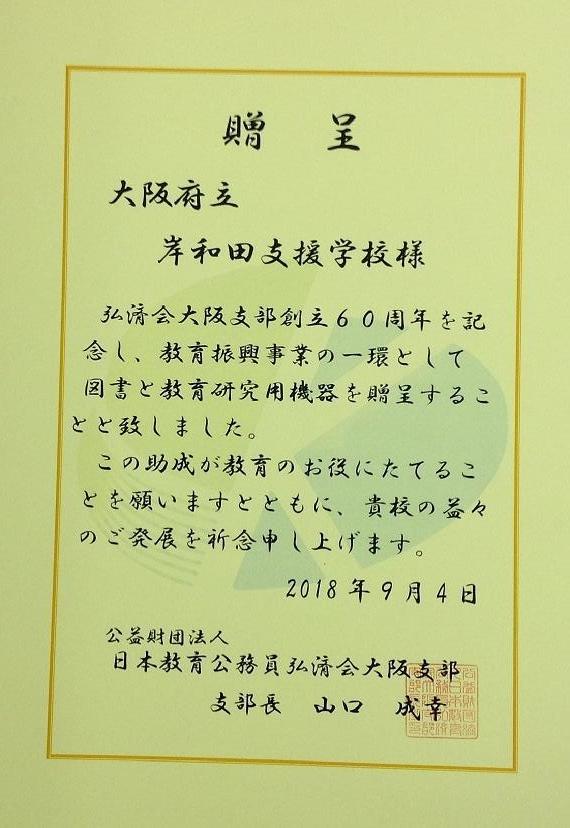 贈 呈
大阪府立
岸和田支援学校様
弘済会大阪支部創立60周年を記
念し、教育振興事業の一環として
図書と教育研究用機器を贈呈するこ
とと致しました。
この助成が教育のお役にたてるこ
とを願いますとともに、貴校の益々
のご発展を祈念申し上げます。
2018年9月4日
公益財団法人
日本教育公務員弘済会大阪支部
支部長 山口 成幸